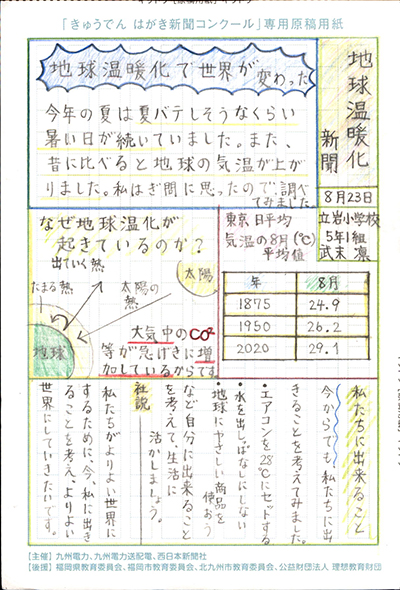 「きゅうでん はがき新聞コンクール」専用原稿用紙
地球温暖化
新聞
8月23日
立岩小学校
5年1組
武末 凛
地球温暖化で世界が変わった
今年の夏は夏バテしそうなくらい
暑い日が続いていました。また、
昔に比べると地球の気温が上が
りました。私はぎ問に思ったので、調べ
てみました。
なぜ地球温化が
起きているのか?
出ていく熱
たまる熱
太陽の
熱
太陽
地球
大気中のCO²
等が急げきに増
加しているからです。
東京 日平均
気温の8月(℃)
平均値
年 8月
1875 24.9
1950 26.2
2020 29.1
私たちに出来ること
今からでも私たちに出
きることを考えてみました。
・エアコンを28℃にセットする
・水を出しぱなしにしない
・地球にやさしい商品を
使おう
など自分に出来ること
を考えて、生活に
活かしましょう。
社説
私たちがよりよい世界に
するために、今、私に出き
ることを考え、よりよい
世界にしていきたいです。
【主催】九州電力、九州電力送配電、西日本新聞社
【後援】福岡県教育委員会、福岡市教育委員会、北九州市教育委員会、公益財団法人 理想教育財団